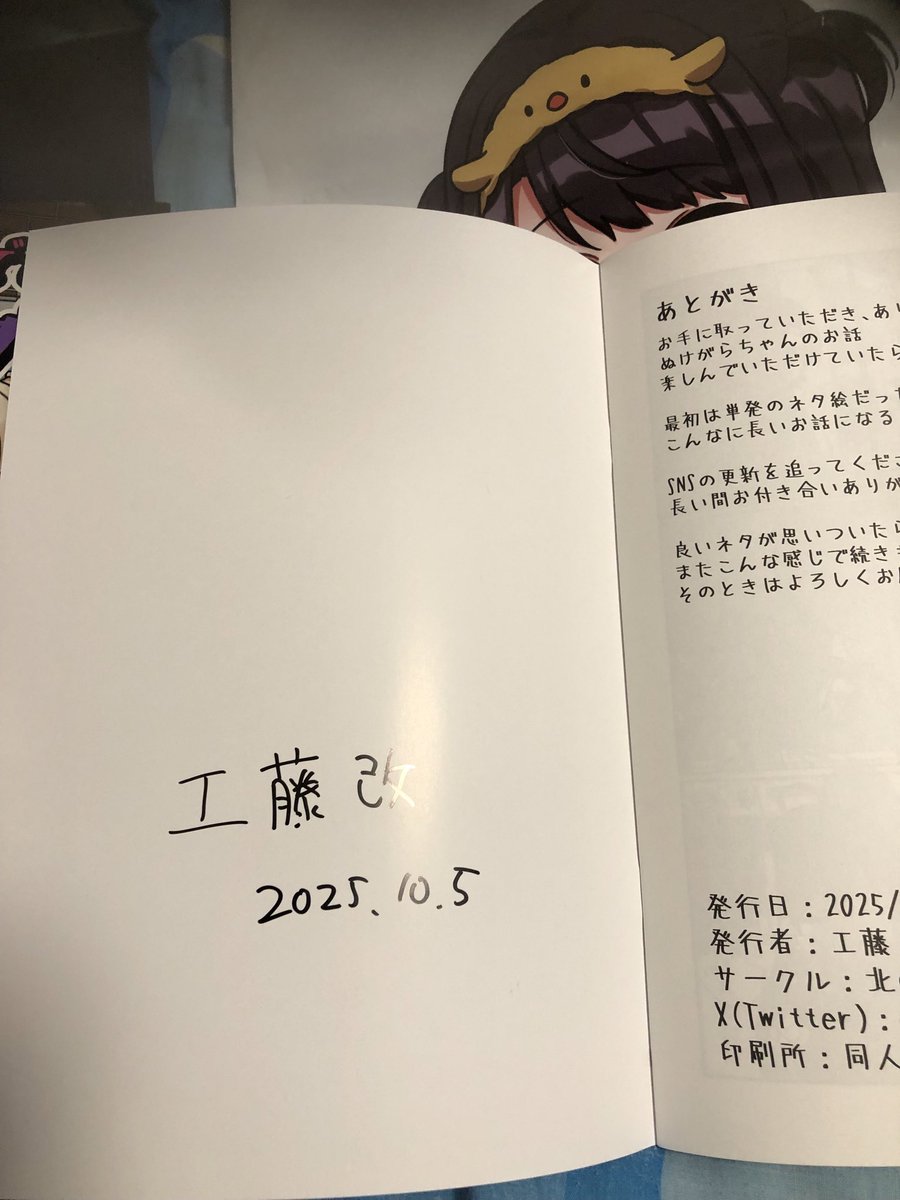 工藤改
2025.10.5
あとがき
お手に取っていただき、あり
ぬけがらちゃんのお話
楽しんでいただけていたら
最初は単発のネタ絵だった
こんなに長いお話になる
SNSの更新を追ってくださ
長い間お付き合いありが
良いネタが思いついたら
またこんな感じで続き
そのときはよろしくお
発行日：2025/
発行者：工藤
サークル：北
X(Twitter)：
印刷所：同人